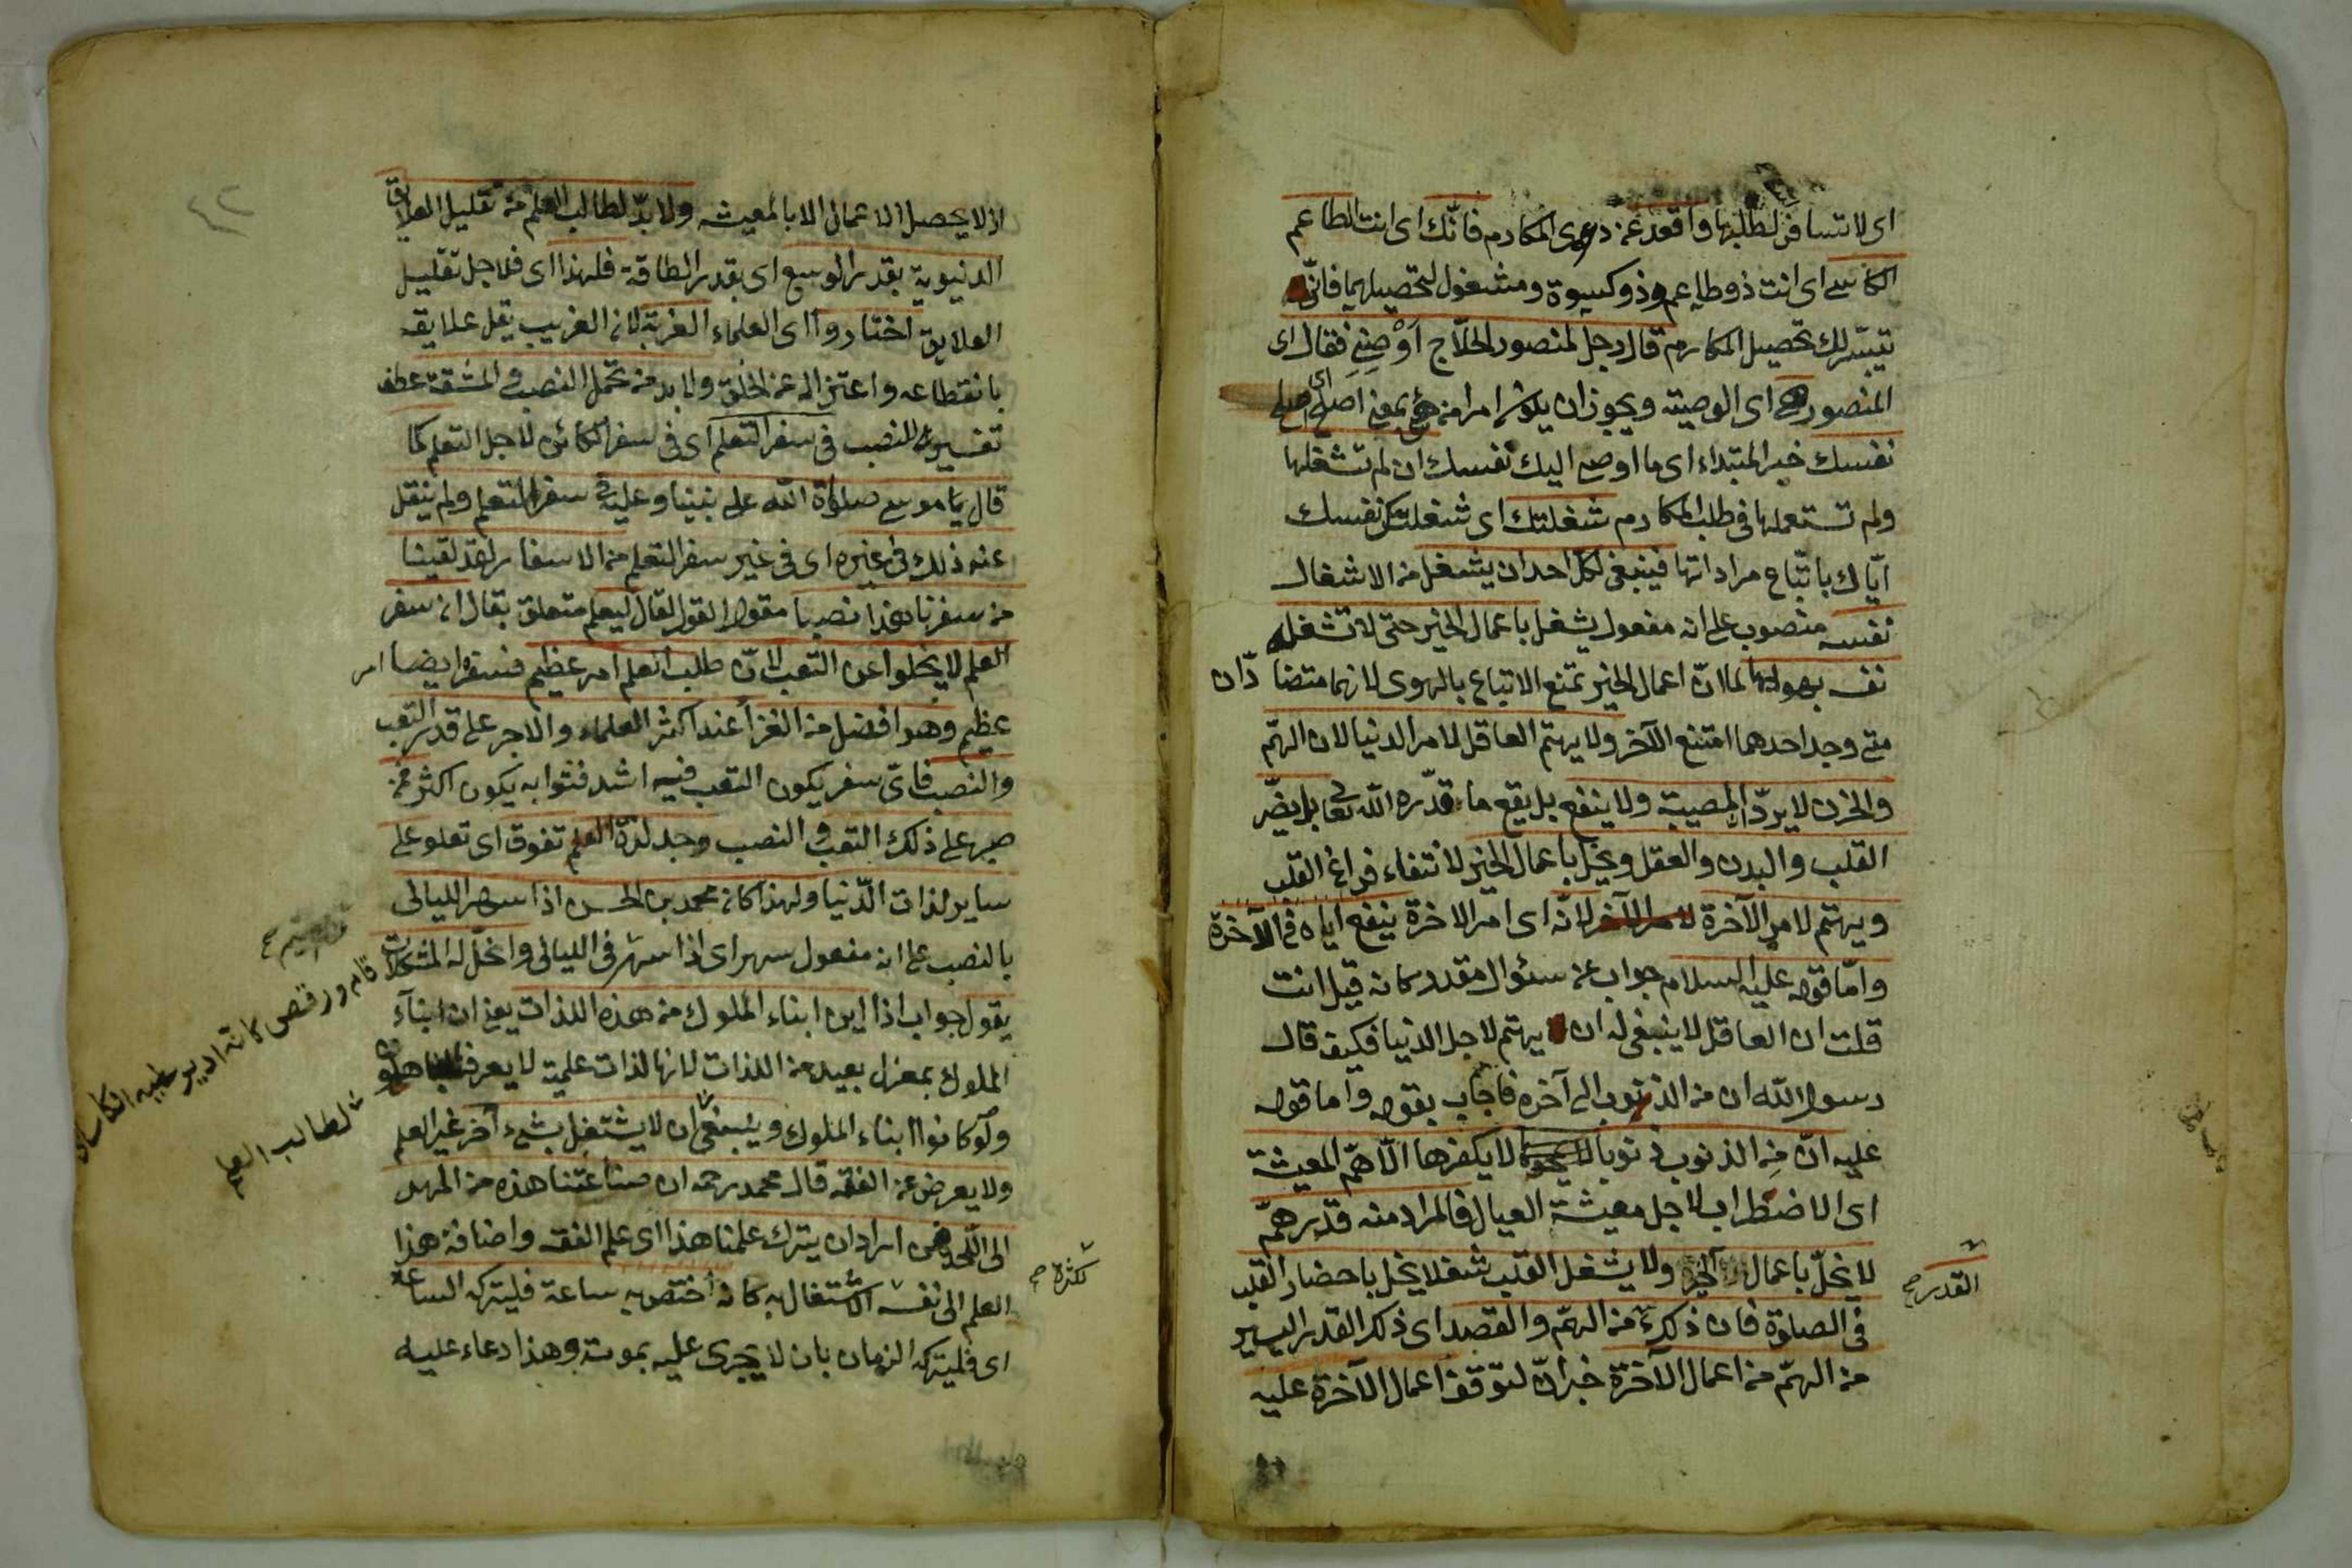 اى لا تسافر لطلبها واقعد عن دعوى المكارم فانّك اى انت الطاعم
الكاسى اى انت ذو طاعم وذو كسوة ومشغول لتحصيلهما فانّى
تيسّر لك تحصيل المكارم قال رجل لمنصور الحلّاج اَوْصِنِى فقال اى
المنصور هى اى الوصية ويجوز ان يكون امرا من هئ بمعنى اصلح اى اصلح
نفسك خبر المبتداء اى ما اوصى اليك نفسك ان لم تشغلها
ولم تستعملها فى طلب المكارم شغلتك اى شغلتك نفسك
ايّاك باتّباع مراداتها فينبغى لكل احد ان يشغل من الاشغال
نفسه منصوب على انه مفعول يشغل باعمال الخير حتى لا تشغله
نفسه بهواها لما انّ اعمال الخير تمنع الاتباع بالهوى لانهما متضادّان
متى وجد احدهما امتنع الآخر ولا يهتم العاقل لامر الدنيا لان الهمّ
والحزن لا يردّ المصيبة ولا ينفع بل يقع ما قدّره اللّه تعالى بل يضّر
القلب والبدن والعقل ويخلّ باعمال الخير لانتفاء فراغ القلب
ويهتم لامر الآخرة لانّه اى امر الاخرة ينفع اياه فى الآخرة
وامّا قوله عليه السلام جواب عن سئوال مقدر كانه قيل انت
قلت ان العاقل لا ينبغى له ان يهتم لاجل الدنيا فكيف قال
رسول اللّه ان من الذنوب الى آخره فاجاب بقوله واما قوله
عليه انّ مِن الذنوب ذنوبا لا يكفرها الّا همّ المعيشة
اى الاضطراب لاجل معيشة العيال فالمراد منه قدر همّ
لا يخلّ باعمال الخير ولا يشغل القلب شغلا يخل باحضار القلب
القدر صح
فى الصلوة فان ذلك من الهمّ والقصد اى ذلك القدر اليسير
من الهمّ من اعمال الآخرة خبر انّ لتوقف اعمال الآخرة عليه
٤٢
اذ لا يحصل الاعمال الا بالمعيشة ولا بدّ لطالب العلم من تقليل العلايق
الدنيوية بقدر الوسع اى بقدر الطاقة فلهذا اى فلاجل تقليل
العلايق اختاروا اى العلماء الغربة لان الغريب يقل علايقه
بانقطاعه واعتزاله عن الخلق ولا بد من تحمل النصب والمشقة عطف
تفسيرى للنصب فى سفر التعلم اى فى سفر الكائن لاجل التعلم كما
قال موسى صلوة اللّه على نبينا وعليه فى سفر التعلم ولم ينقل
عنه ذلك فى غيره اى فى غير سفر التعلم من الاسفار لقد لقينا
من سفرنا هذا نصبا مقول القول لقال ليعلم متعلق بقال ان سفر
العلم لا يخلوا عن التعب لانّ طلب العلم امر عظيم فسفره ايضا امر
عظيم وهو افضل من الغزأ عند اكثر العلماء والاجر على قدر التعب
والنصب فاىّ سفر يكون التعب فيه اشد فثوابه يكون اكثر فمن
صبر على ذلك التعب والنصب وجد لذة العلم تفوق اى تعلو على
ساير لذات الدّنيا ولهذا كان محمد بن الحسن اذا سهر الليالى
بالنصب على انه مفعول سهر اى اذا سهر فى الليالى وانحل له المشكلات
قام ورقص كانه
يقول جواب اذا اين ابناء الملوك من هذه اللذات يعنى ان ابنآء
الملوك بمعزل بعيد من اللذات لانها لذات علمية لا يعرفها
ولو كانوا ابناء الملوك وينبغى ان لا يشتغل بشىء آخر غير العلم
لطالب العلم
ولا يعرض عن الفقه قال محمد رحمه ان صناعتنا هذه من المهد
الى اللّحد فمن اراد ان يترك علمنا هذا اى علم الفقه واضافة هذا
العلم الى نفسه الاشتغال به كانه اختص به ساعة فليتركه الساعة
لكثرة صح
اى فليتركه الزمان بان لا يجرى عليه بموته وهذا دعاء عليه